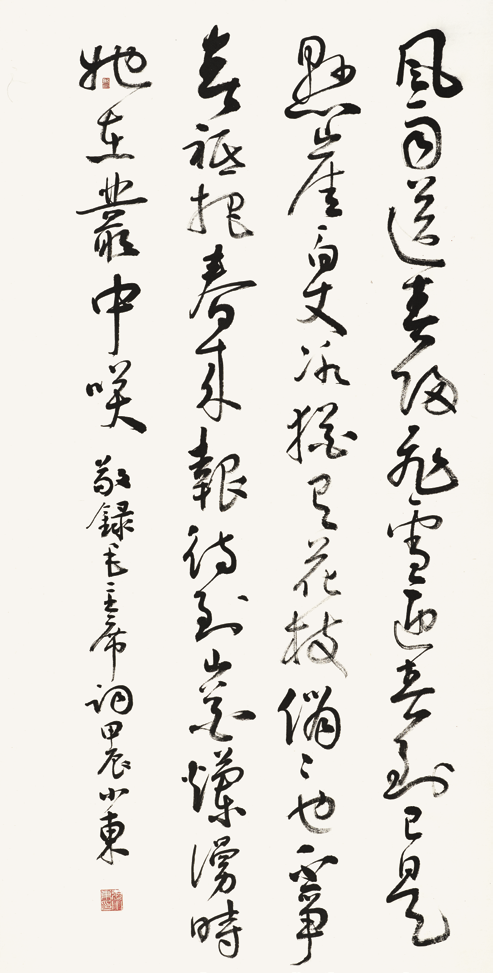 風雨送春歸飛雪迎春到已是
懸崖百丈冰猶有花枝俏〻也不爭
春祗把春來報待到山花爛漫時
她在叢中咲 敬錄毛主席詞甲辰小東